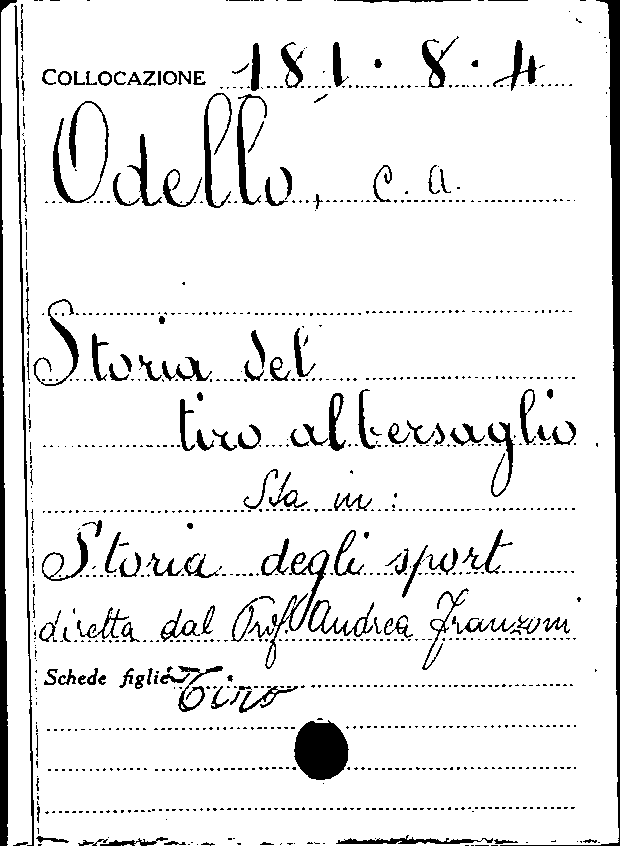 COLLOCAZIONE 181.8.4
Odello, C. A.
Storia del
tiro al bersaglio
Sta in:
Storia degli sport
diretta dal Prof. Andrea Franzoni
Schede figlie Tiro